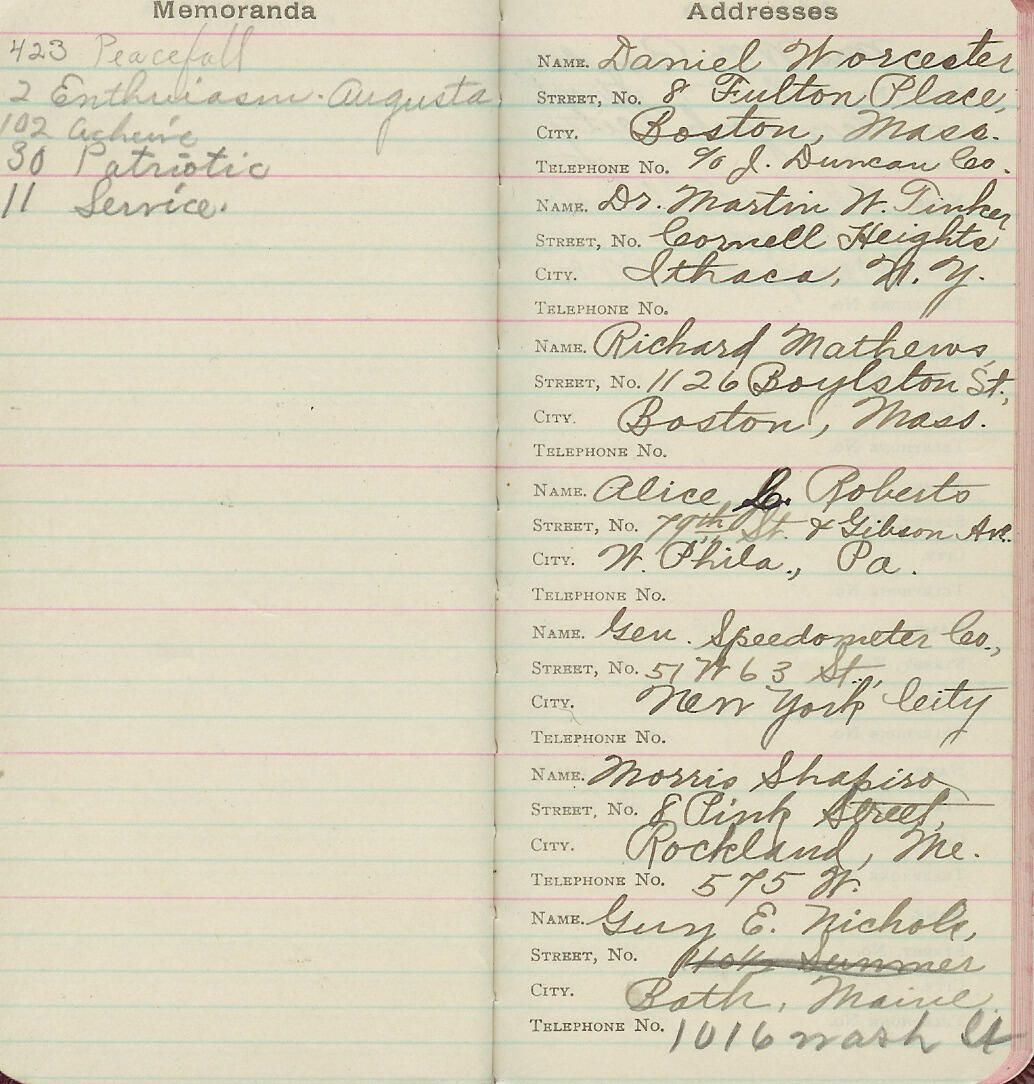 Memoranda
423 Peacefall
2 Enthuiasm - Augusta
102 acheive
30 Patriotic
11 Service.
Addresses
NAME. Daniel Worcester
STREET, NO. 8 Fulton Place,
CITY. Boston, Mass.
TELEPHONE NO. c/o J. Duncan Co.
NAME. Dr. Martin W. Tinker
STREET, NO. Cornell Heights
CITY. Ithaca, N. Y.
TELEPHONE NO.
NAME. Richard Mathews,
STREET, NO. 1126 Boylston St.,
CITY. Boston, Mass.
TELEPHONE NO.
NAME. Alice Roberts
STREET, NO. 79th St. & Gibson Ave.
CITY. W. Phila., Pa.
TELEPHONE NO.
NAME. Gen. Speedometer Co.,
STREET, NO. 51 W 63 St.,
CITY. New York City
TELEPHONE NO.
NAME. Morris Shapiro
STREET, NO. 8 Pink Street,
CITY. Rockland, Me.
TELEPHONE NO. 575 W.
NAME. Guy E. Nichols,
STREET, NO. Summer
CITY. Bath, Maine.
TELEPHONE NO. 1016 Wash St